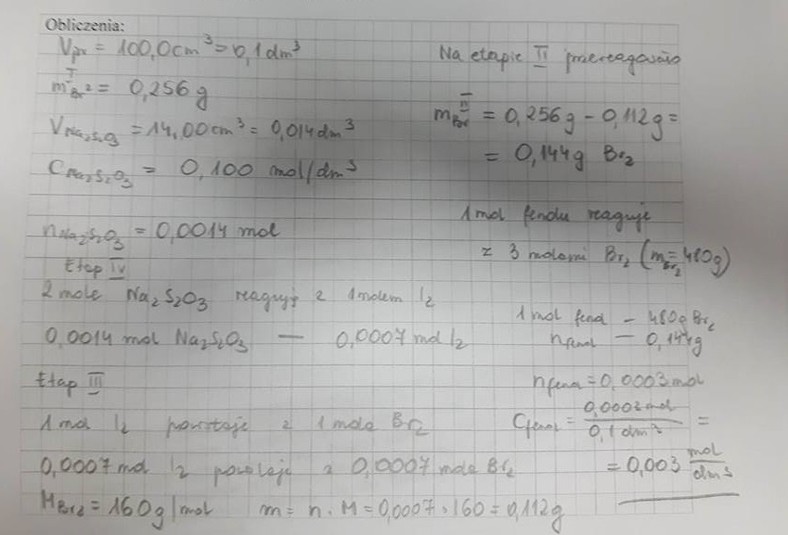 Obliczenia:
Vpr = 100,0 cm³ = 0,1 dm³
m^I Br2 = 0,256 g
V Na2S2O3 = 14,00 cm³ = 0,014 dm³
C Na2S2O3 = 0,100 mol/dm³
n Na2S2O3 = 0,0014 mol
Etap IV
2 mole Na2S2O3 reagują z 1 molem I2
0,0014 mol Na2S2O3 — 0,0007 mol I2
Etap III
1 mol I2 powstaje z 1 mola Br2
0,0007 mol I2 powstaje z 0,0007 mola Br2
M Br2 = 160 g/mol m = n · M = 0,0007 · 160 = 0,112 g
Na etapie II przereagowało
m^II Br2 = 0,256 g - 0,112 g =
= 0,144 g Br2
1 mol fenolu reaguje
z 3 molami Br2 (m Br2 = 480 g)
1 mol fenol — 480 g Br2
n fenol — 0,144 g
n fenol = 0,0003 mol
C fenol = 0,0003 mol / 0,1 dm³ =
= 0,003 mol/dm³